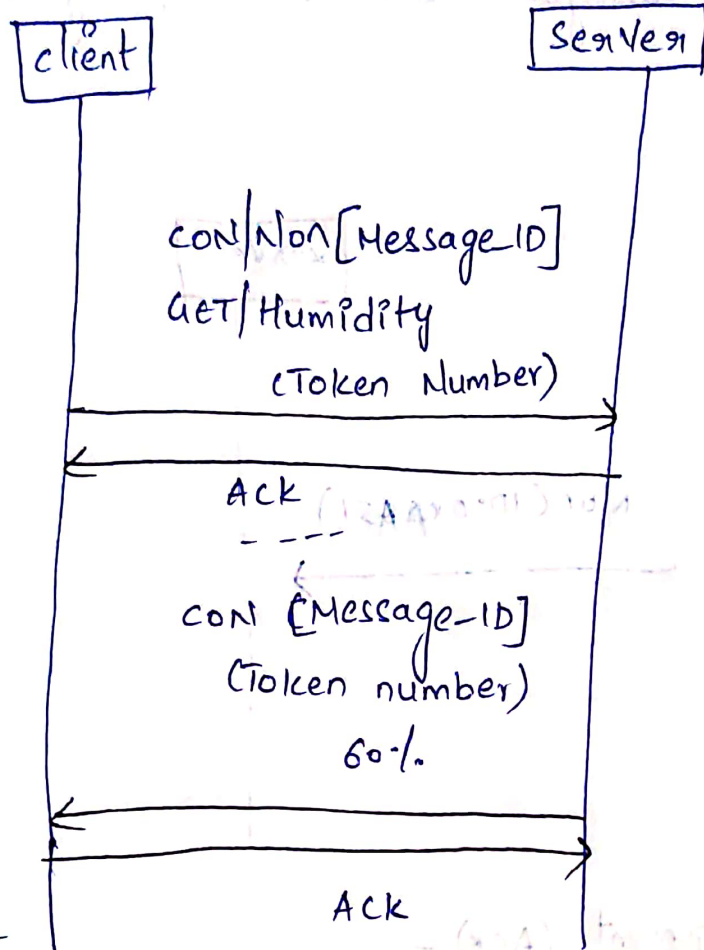 client
Server
CON/Non[Message_ID]
GET/Humidity
(Token Number)
ACK
CON [Message-ID]
(Token number)
60%
ACK